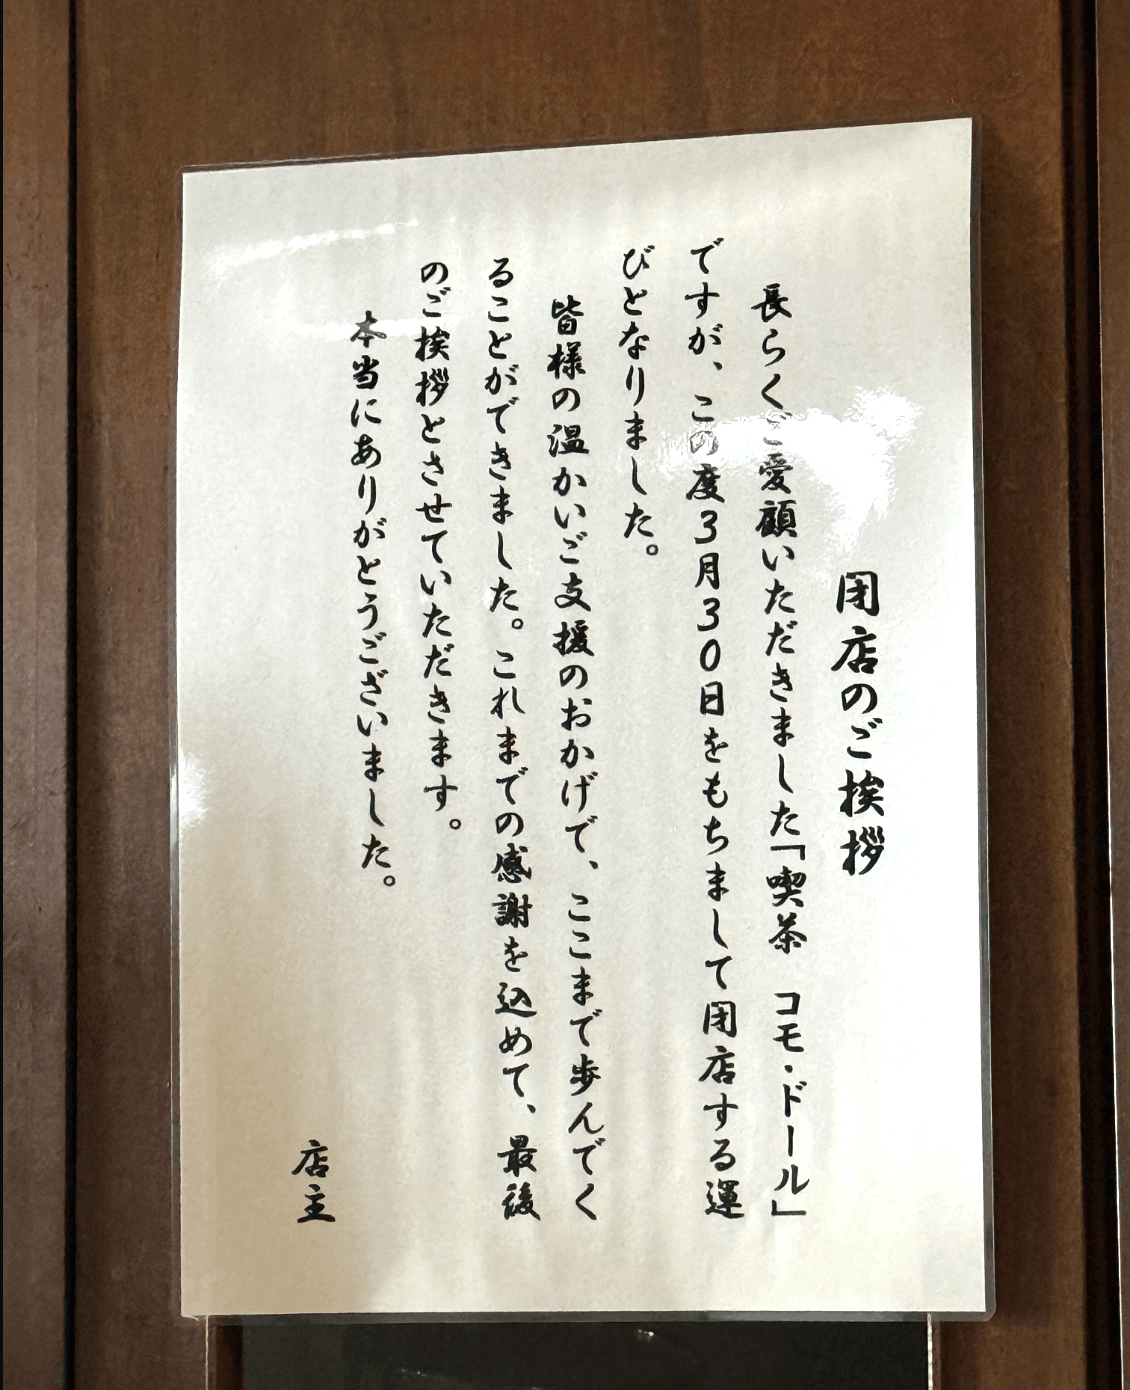 閉店のご挨拶
長らくご愛顧いただきました「喫茶　コモ・ドール」
ですが、この度３月３０日をもちまして閉店する運
びとなりました。
皆様の温かいご支援のおかげで、ここまで歩んでく
ることができました。これまでの感謝を込めて、最後
のご挨拶とさせていただきます。
本当にありがとうございました。
店主